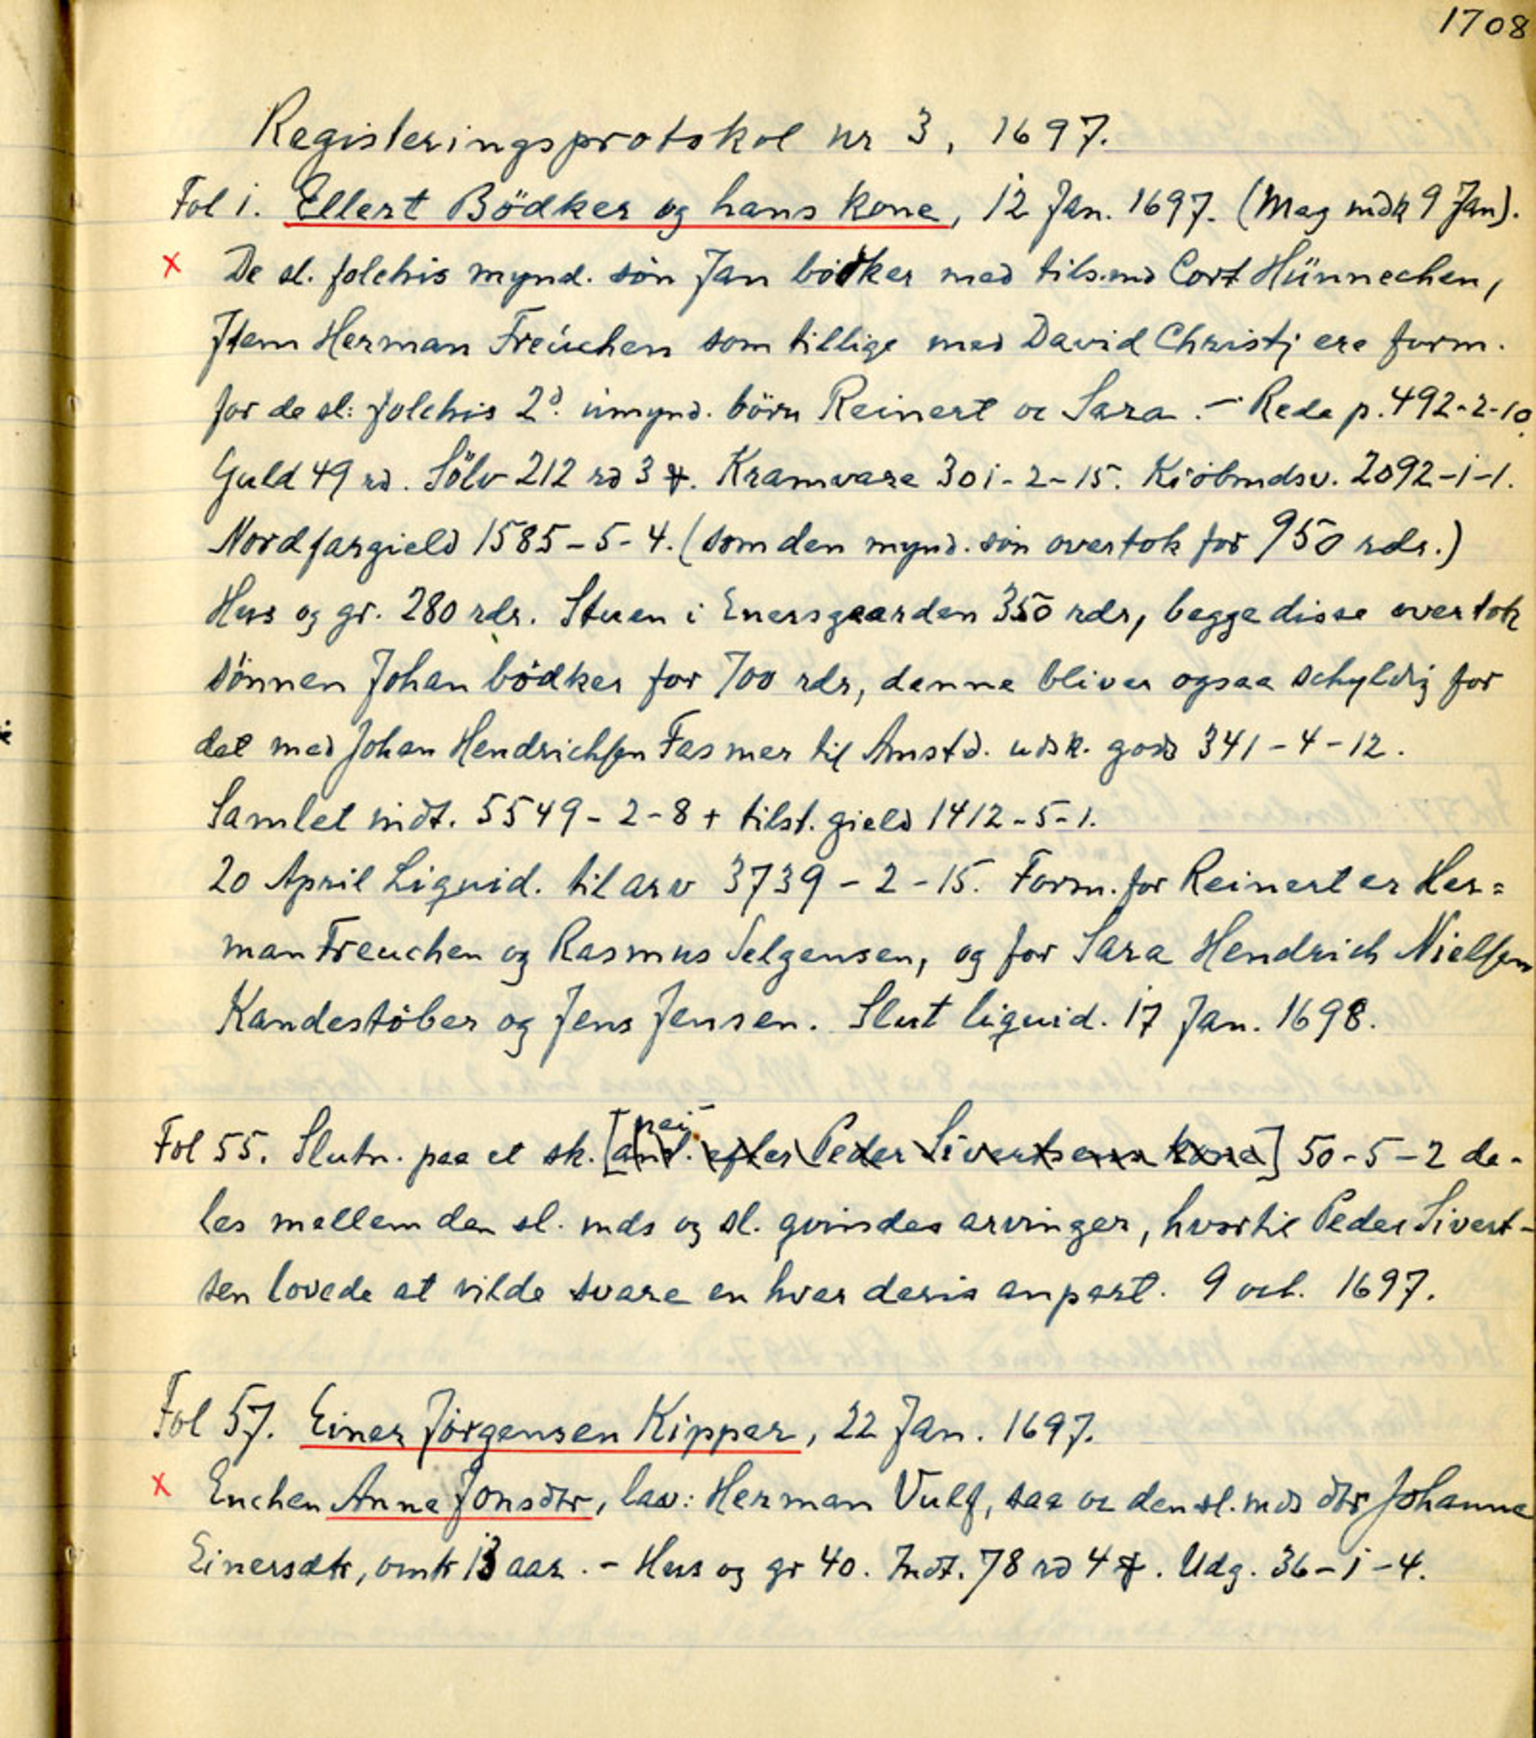 1708
Registeringsprotokol nr 3, 1697.
Fol 1. Ellert Bödker og hans kone, 12 Jan. 1697. (Mag mdk 9 Jan).
x De sl. folchis mynd. sön Jan bödker med tils.md Cort Hünnechen,
Item Herman Freüchen som tillige med David Christj ere form.
for de sl: folchis 2d. ümynd. börn Reinert oc Sara. - Rede p. 492-2-10.
Guld 49 rd. Sölv 212 rd 3 ꝟ. Kramvare 301-2-15. Kiöbmdsv. 2092-1-1.
Nordfargield 1585-5-4. (som den mynd. sön overtok for 950 rdr.)
Hus og gr. 280 rdr. Stuen i Enersgaarden 350 rdr, begge disse overtok
sönnen Johan bödker for 700 rdr, denne bliver ogsaa schyldig for
det med Johan Hendrichsen Fasmer til Amstd. udsk. gods 341-4-12.
Samlet indt. 5549-2-8 + tilst. gield 1412-5-1.
20 April Liquid. til arv 3739-2-15. Form. for Reinert er Her=
man Freuchen og Rasmus Selgensen, og for Sara Hendrich Nielsen
Kandestöber og Jens Jensen. Slut liquid. 17 Jan. 1698.
Fol 55. Slutn. paa et sk. [anl. efter Peder Sivertsens kone] nei 50-5-2 de-
les mellem den sl. mds og sl. qvindes arvinger, hvortil Peder Sivert-
sen lovede at vilde svare en hver deris anpart. 9 oct. 1697.
Fol 57. Einer Jörgensen Kipper, 22 Jan. 1697.
x Enchen Anne Jonsdtr, lav: Herman Vulf, saa oc den sl. mds dtr Johanne
Einersdtr, omk 13 aar. - Hus og gr 40. Indt. 78 rd 4 ꝟ. Udg. 36-1-4.